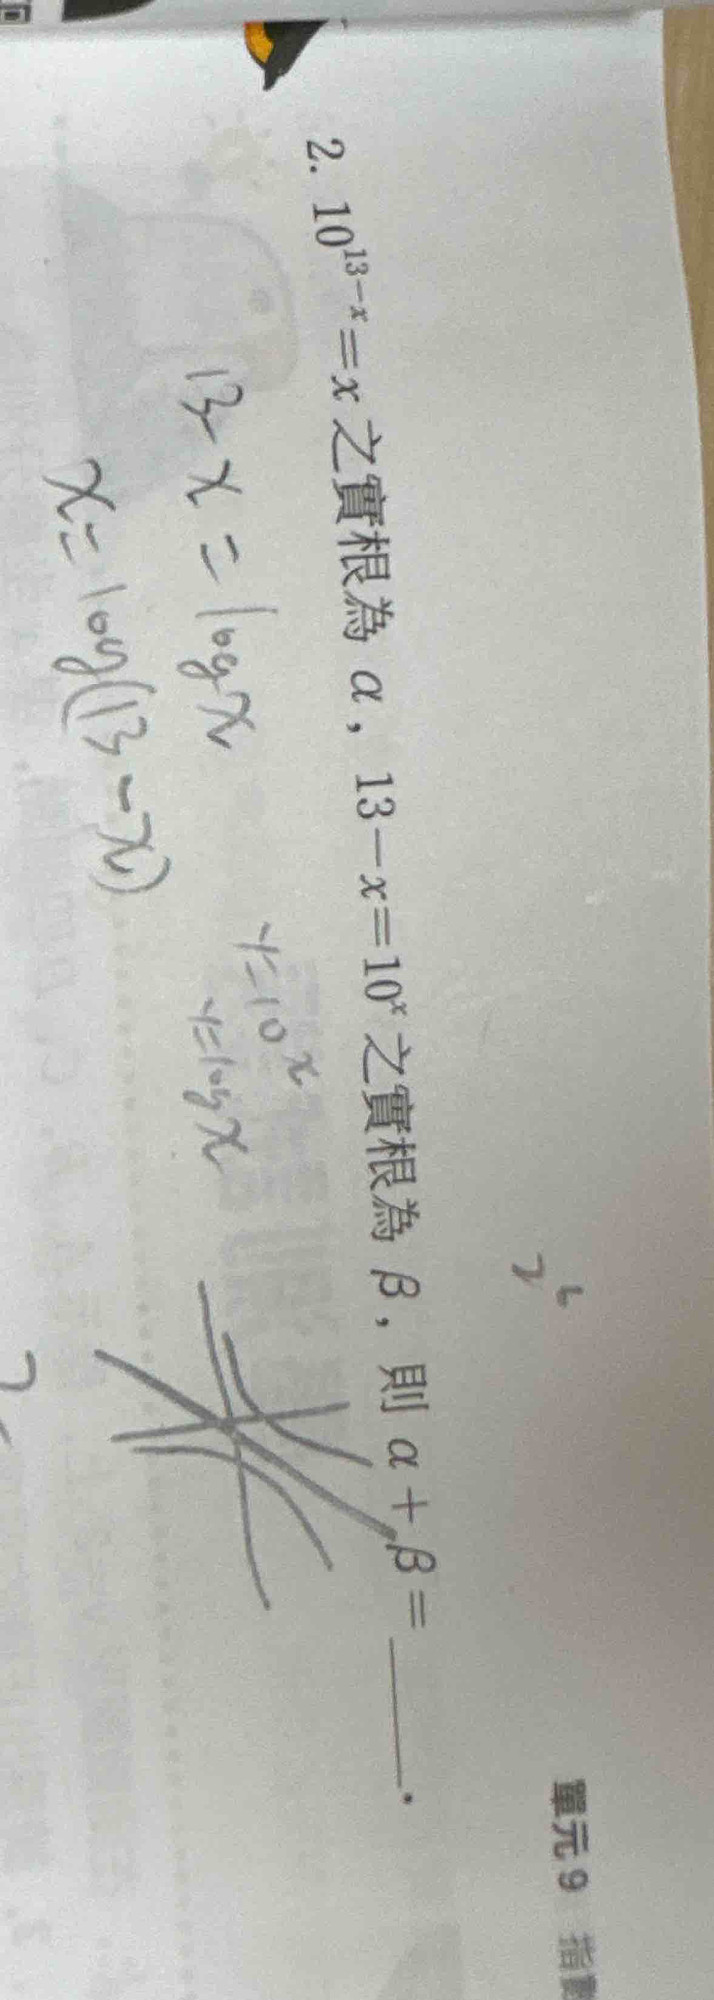 2. 10^{13-x}=x 之實根為 α, 13-x=10^x 之實根為 β, 則 α+β=______.
13-x=log x
x=log(13-x)
y=10^x
y=log x
單元 9 指數